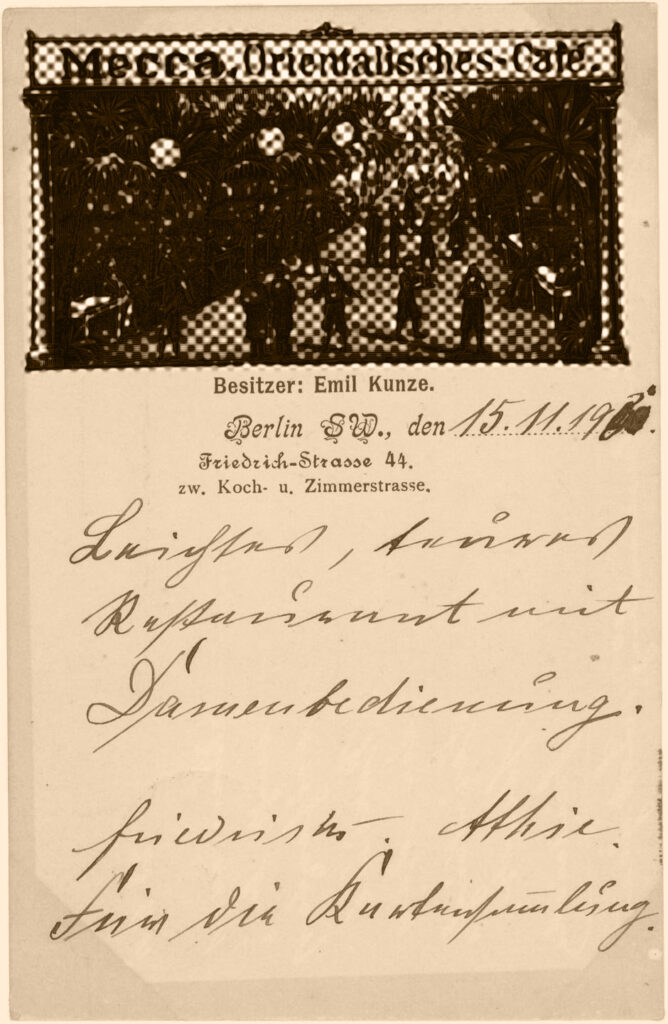 Mecca, Orientalisches-Café.
Besitzer: Emil Kunze.
Berlin SW., den 15. 11. 19
Friedrich-Strasse 44.
zw. Koch- u. Zimmerstrasse.
Leichtes, teures
Restaurant mit
Damenbedienung.
Für die Kartensammlung.